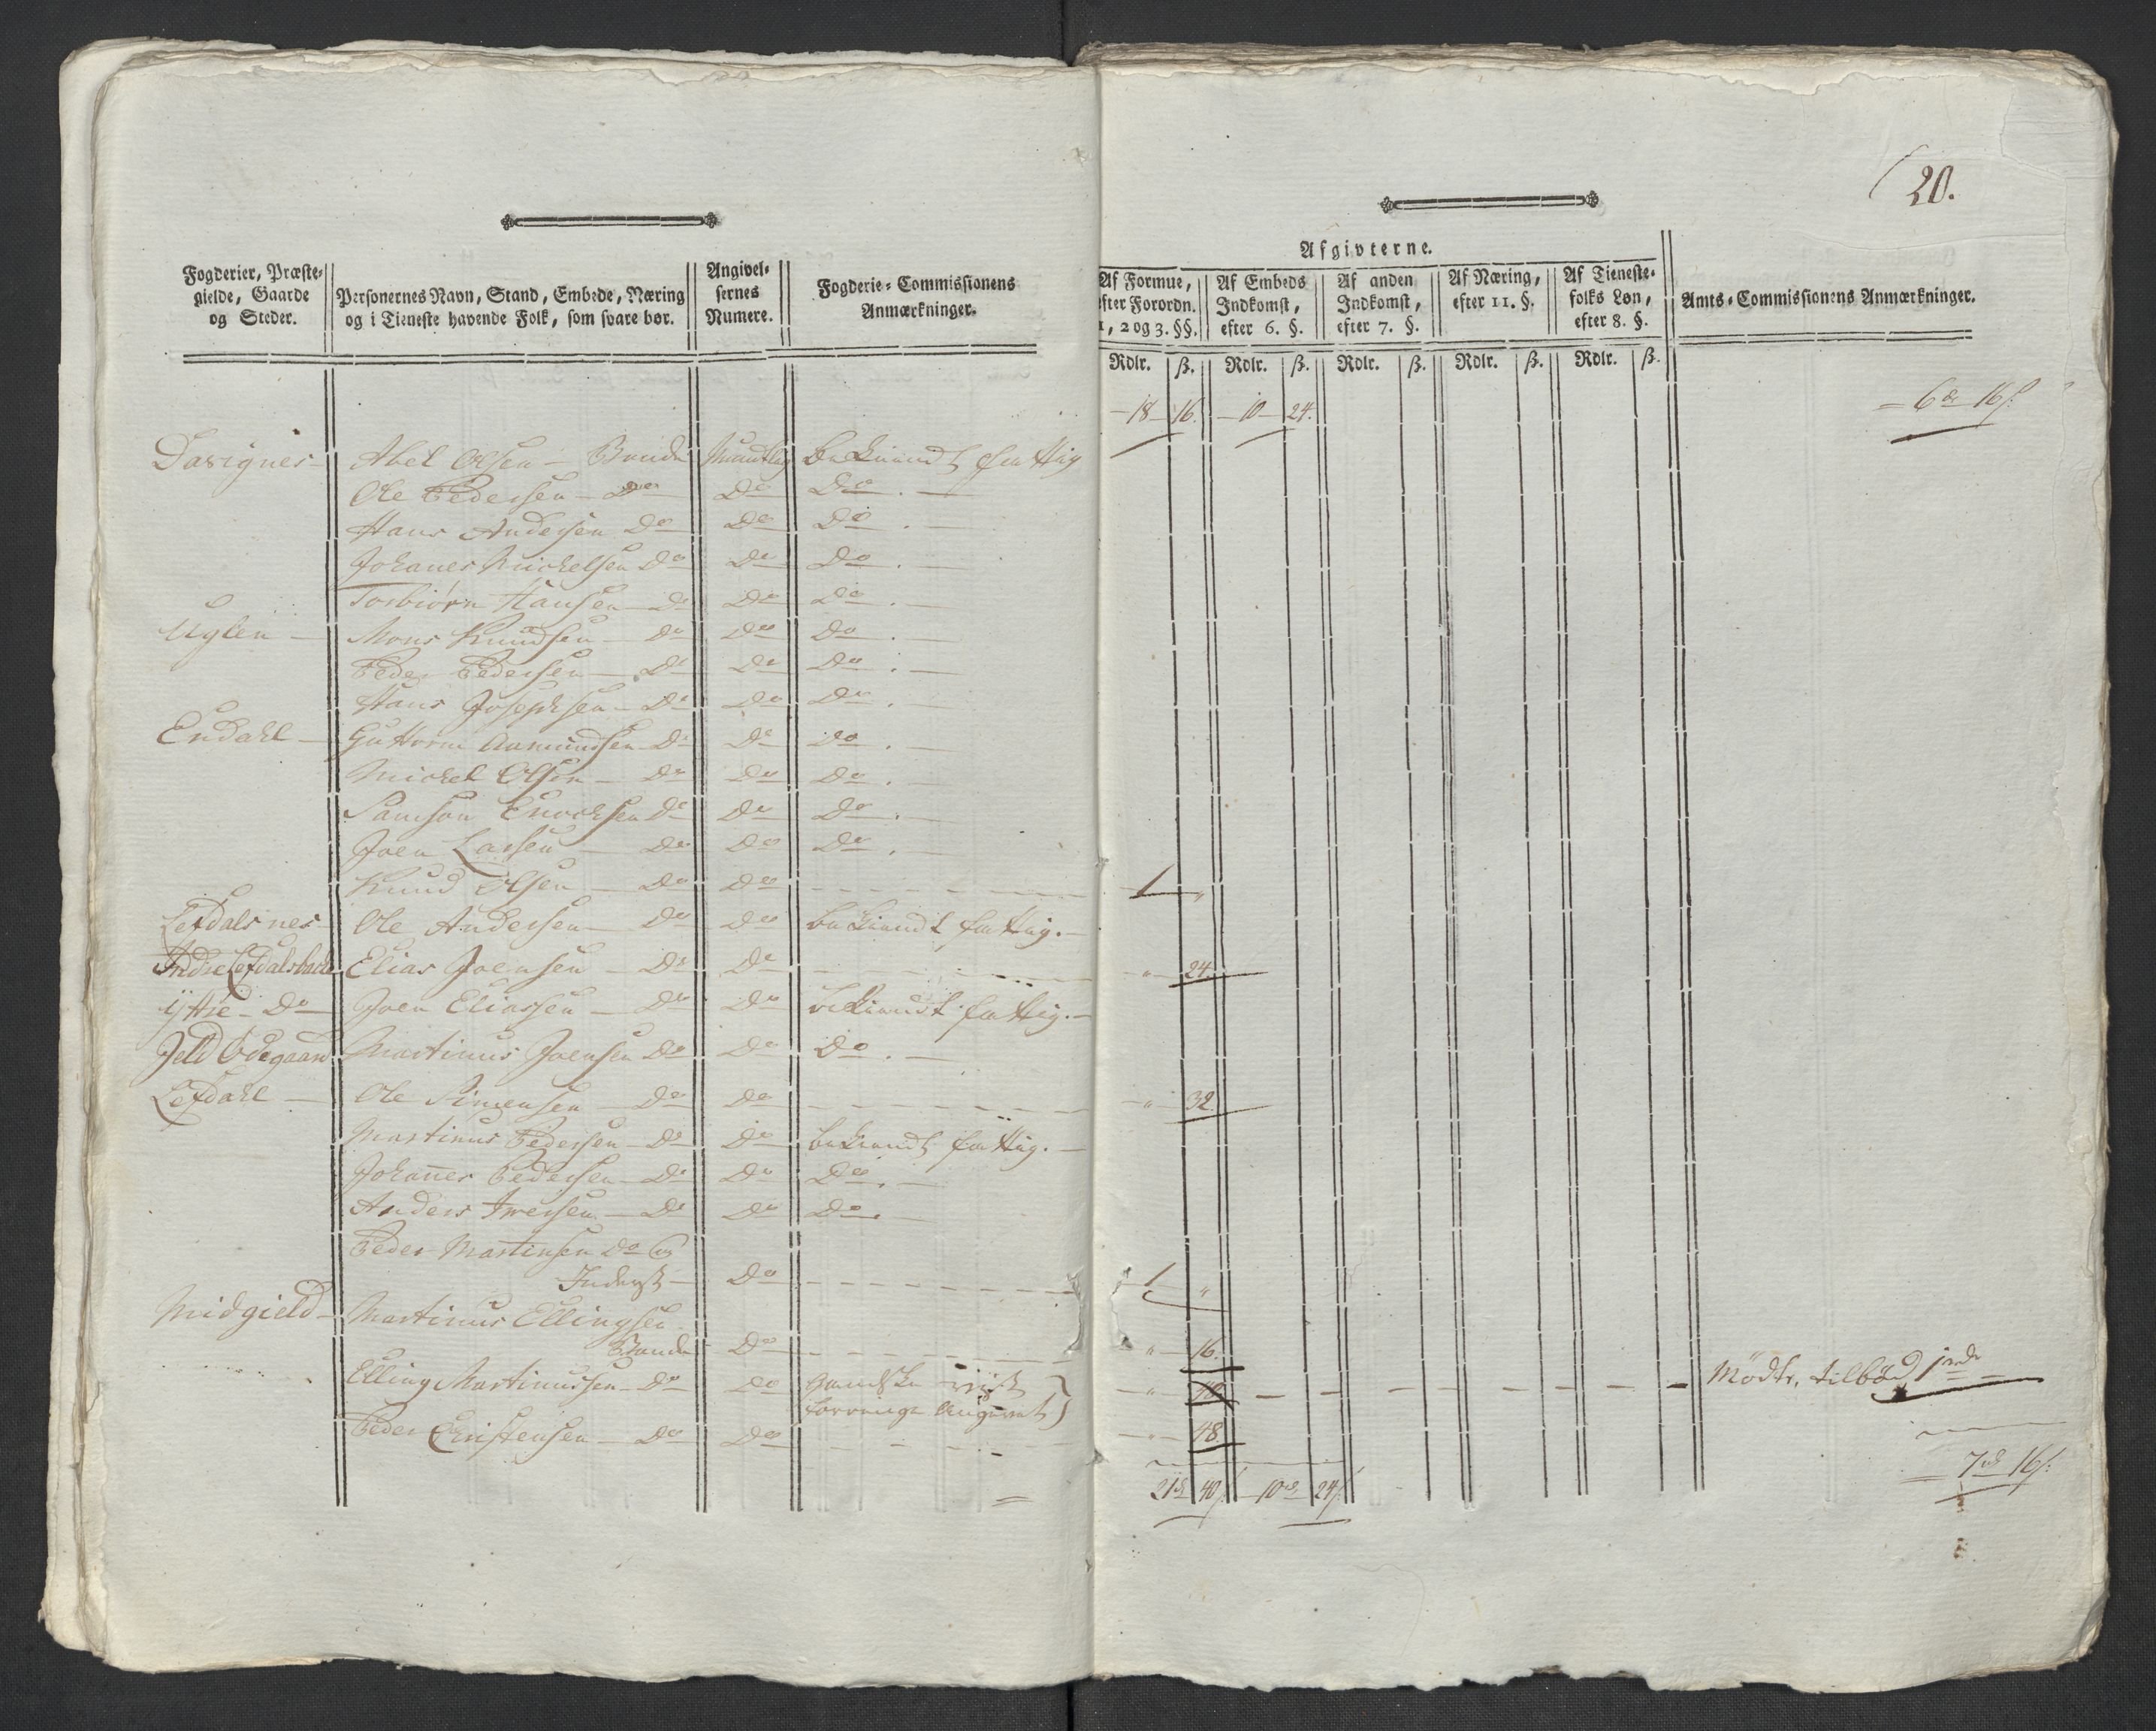 20.
Fogderier, Præste-
gielde, Gaarde
og Steder.
Personernes Navn, Stand, Embede, Næring
og i Tieneste havende Folk, som svare bør.
Angivel-
sernes
Numere.
Fogderie-Commissionens
Anmærkninger.
Afgivterne.
Af Formue,
efter Forordn.
1, 2 og 3. §§.
Af Embeds
Indkomst,
efter 6. §.
Af anden
Indkomst,
efter 7. §.
Af Næring,
efter 11. §.
Af Tieneste-
folks Løn,
efter 8. §.
Amts-Commissionens Anmærkninger.
Rdlr. ß. Rdlr. ß. Rdlr. ß. Rdlr. ß. Rdlr. ß.
18 16. 10 24. 6 16ß
Davignes Abel Olsen Bonde Mundtlig bekiendt fattig
Ole Pedersen Do Do Do.
Hans Andersen Do Do Do.
Johanes Michelsen Do Do Do.
Torbiørn Hansen Do Do Do.
Uglen Mons Knudsen Do Do Do.
Peder Pedersen Do Do Do.
Hans Josephsen Do Do Do.
Endahl Guttorm Aamundsen Do Do Do.
Michel Olsen Do Do Do.
Samson Enochsen Do Do Do.
Joen Larsen Do Do Do.
Knud Olsen Do Do 1 "
Lefdalsnes Ole Andersen Do Do bekiendt fattig.
Indre Lefdalsbache Elias Joensen Do Do " 24.
ÿttre Do Joen Eliassen Do Do bekiendt fattig.
Jeld Ødegaard Martinus Joensen Do Do Do.
Lefdahl Ole Simensen Do Do " 32.
Martinus Pedersen Do Do bekiendt fattig.
Johanes Pedersen Do Do Do.
Anders Iversen Do Do Do.
Peder Martinsen Do og
Inderst Do 1 "
Midgield Martinus Ellingsen
Bonde Do " 16.
Elling Martinussen Do Do gandske vist
forringe Angivet " 48. Mödte, tilböd 1 rdr
Peder Christensen Do Do " 48.
21 40ß 10 24ß 7 16ß.